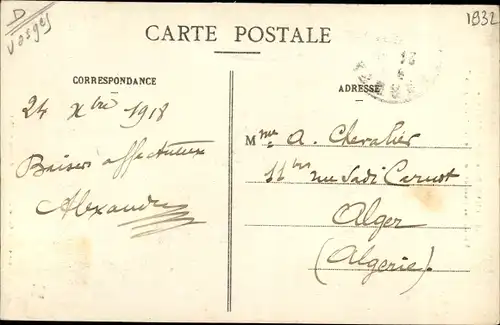 D
Vosges
1932
CARTE POSTALE
CORRESPONDANCE
24 Xbre 1918
Baisers affectueux
Alexandre
ADRESSE
Mme A. Chevalier
11 bis rue Sadi Carnot
Alger
(Algérie).